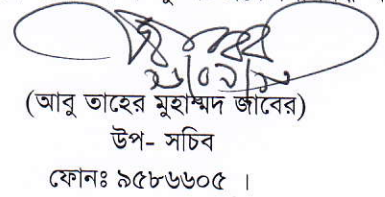 (আবু তাহের মুহাম্মদ জাবের)
উপ- সচিব
ফোনঃ ৯৫৮৬৬০৫ ।